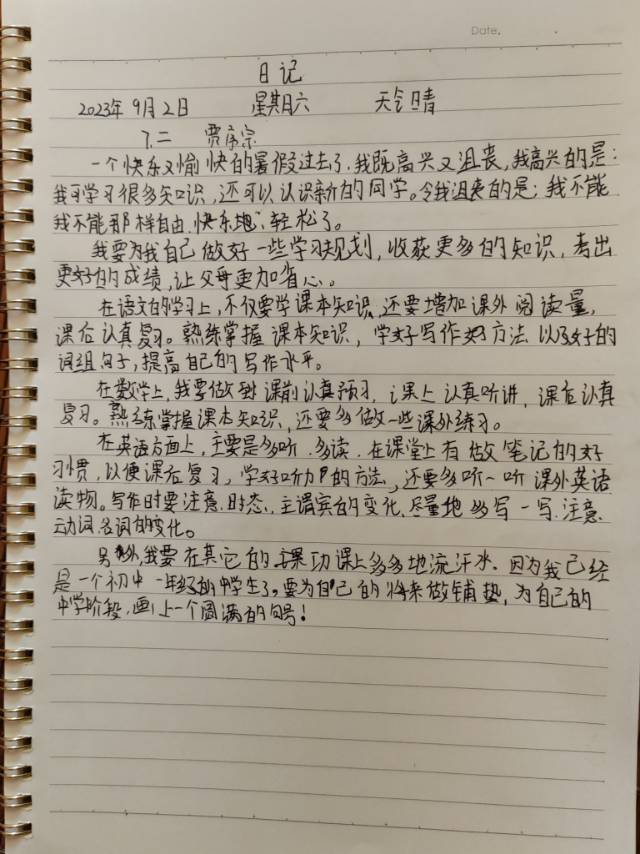 Date.
日记
2023年9月2日 星期六 天气晴
7.二 贾序宗
一个快乐又愉快的暑假过去了,我既高兴又沮丧,我高兴的是:
我可学习很多知识,还可以认识新的同学。令我沮丧的是:我不能
我不能那样自由、快乐地、轻松了。
我要为我自己做好一些学习规划,收获更多的知识,考出
更好的成绩,让父母更加省心。
在语文的学习上,不仅要学课本知识,还要增加课外阅读量,
课后认真复习。熟练掌握课本知识,学好写作好方法以及好的
词组句子,提高自己的写作水平。
在数学上,我要做到课前认真预习,课上认真听讲,课后认真
复习。熟练掌握课本知识,还要多做一些课外练习。
在英语方面上,主要是多听、多读、在课堂上有做笔记的好
习惯,以便课后复习,学好听力的方法,还要多听一听课外英语
读物。写作时要注意、时态、主谓宾的变化、尽量地多写一写、注意
动词、名词的变化。
另外,我要在其它的课功课上多多地流汗水.因为我已经
是一个初中一年级的中学生了,要为自己的将来做铺垫,为自己的
中学阶段,画上一个圆满的句号!